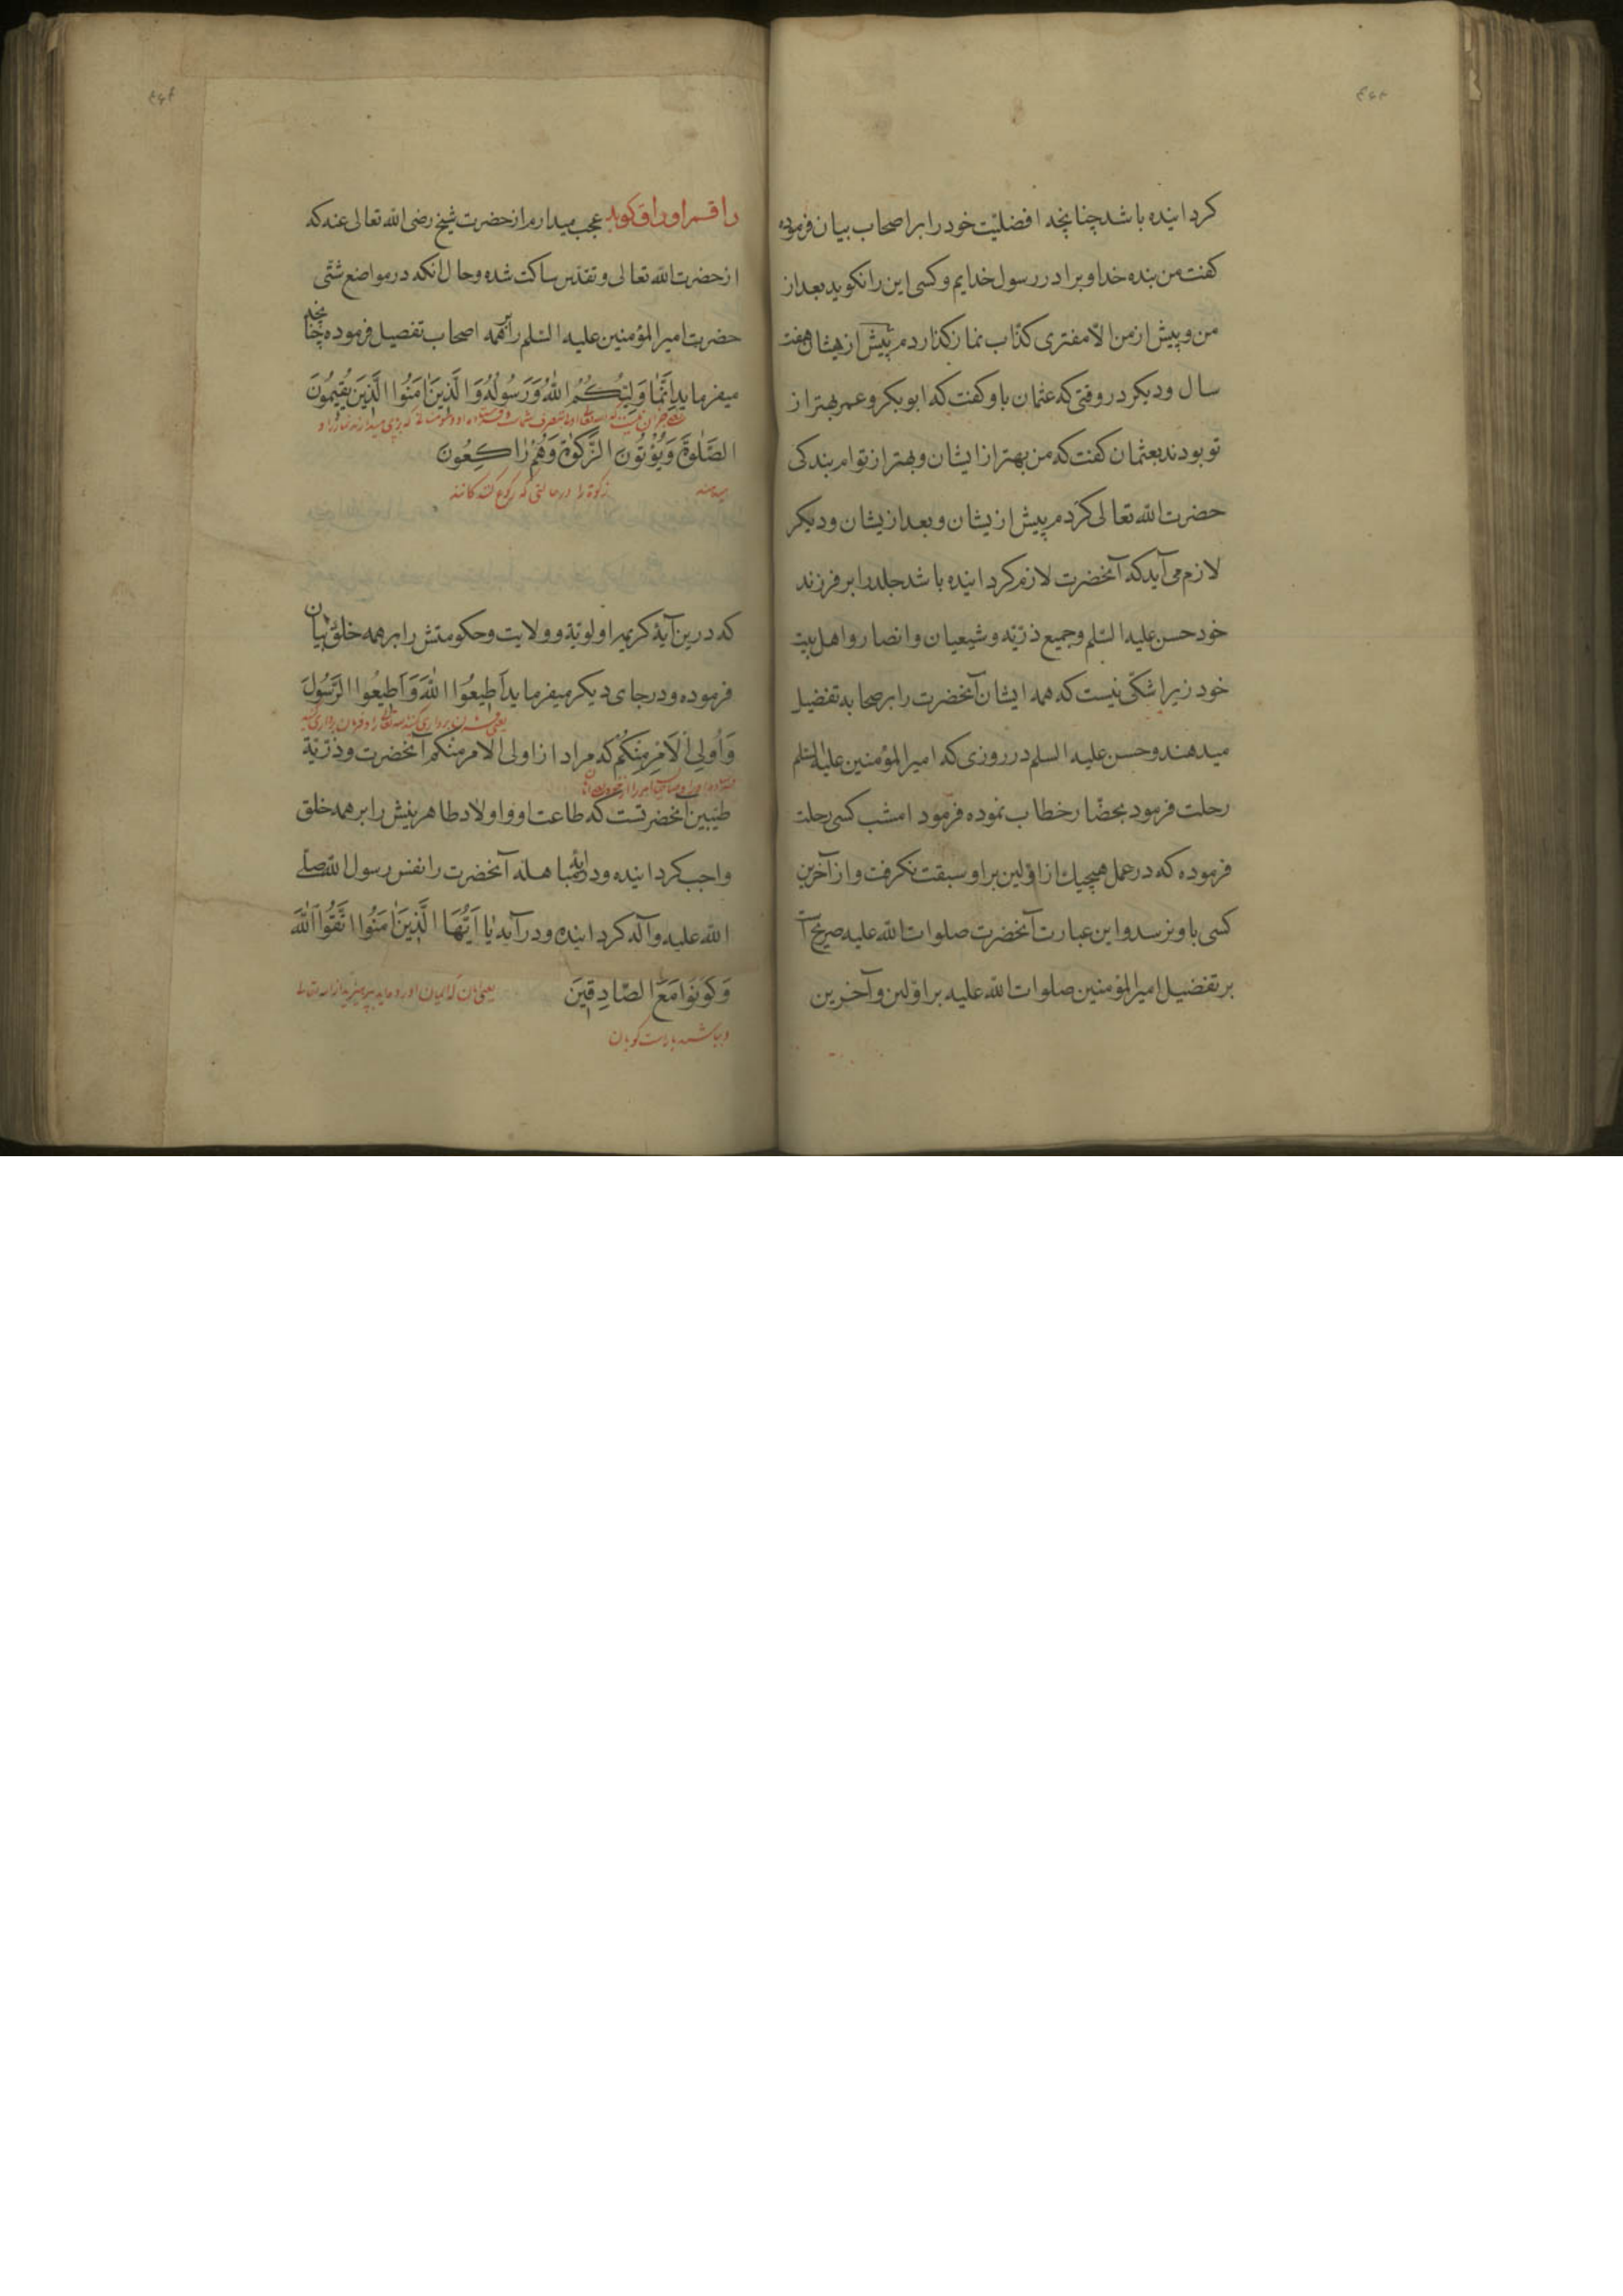 کردانیده باشد چنانچه افضلیّت خود را بر اصحاب بیان فرموده
کفت من بنده خدا و برادر رسول خدایم و کسی این را نکوید بعد از
من و پیش از من الّا مفتری کذّاب نماز کذاردم پیش از یشان هفت
سال و دیکر در وقتی که عثمان باو کفت که ابوبکر و عمر بهتر از
تو بودند بعثمان کفت که من بهتر از ایشان و بهتر از توام بندکی
حضرت الله تعالی کردم پیش از یشان و بعد از یشان و دیکر
لازم می آید که آنحضرت لازم کردانیده باشد جلد را بر فرزند
خود حسن علیه السّلم و جمیع ذرّیّه و شیعیان و انصار و اهل بیت
خود زیرا شکّی نیست که همه ایشان آنحضرت را بر صحابه تفضیل
میدهند و حسن علیه السلم در روزی که امیر المؤمنین علیه السلم
رحلت فرمود بحضّار خطاب نموده فرمود امشب کسی رحلت
فرموده که در عمل هیچیك از اوّلین بر او سبقت نکرفت و از آخرین
کسی باو نرسد و این عبارت آنحضرت صلوات الله علیه صریح آ
بر تفضیل امیر المؤمنین صلوات الله علیه بر اوّلین و آخرین
راقم اوراق کوید عجب میدارم از حضرت شیخ رضی الله تعالی عنه که
از حضرت الله تعالی و تقدّس ساکت شده و حال انکه در مواضع شتّی
حضرت امیر المؤمنین علیه السّلم را بر همه اصحاب تفضیل فرموده چنانچه
میفرماید اِنَّمٰا وَلِیُّکُمُ اللهُ وَرَسُولُهُ وَالَّذِینَ اٰمَنُوا الَّذِینَ یُقِیمُونَ
الصَّلٰوةَ وَیُؤْتُونَ الزَّکٰوةَ وَهُمْ رٰاکِعُونَ
میدهند زکوة را در حالتی که رکوع کننده کانند
که درین آیهٔ کریمه اولویّة و ولایت و حکومتش را بر همه خلق بیان
فرموده و در جای دیکر میفرماید اَطِیعُوا اللهَ وَاَطِیعُوا الرَّسُولَ
وَاُولِی الْاَمْرِ مِنْکُمْ که مراد از اولی الامر منکم آنحضرت و ذرّیّة
طیّبین آنحضرتست که طاعت او و اولاد طاهرینش را بر همه خلق
واجب کردانیده و در آیهٔ مباهله آنحضرت را نفس رسول الله صلی
الله علیه و آله کردانیده و در آیه یٰا اَیُّهَا الَّذِینَ اٰمَنُوا اتَّقُوا اللهَ
وَکُونُوا مَعَ الصّٰادِقِینَ
و باشید با راست کویان